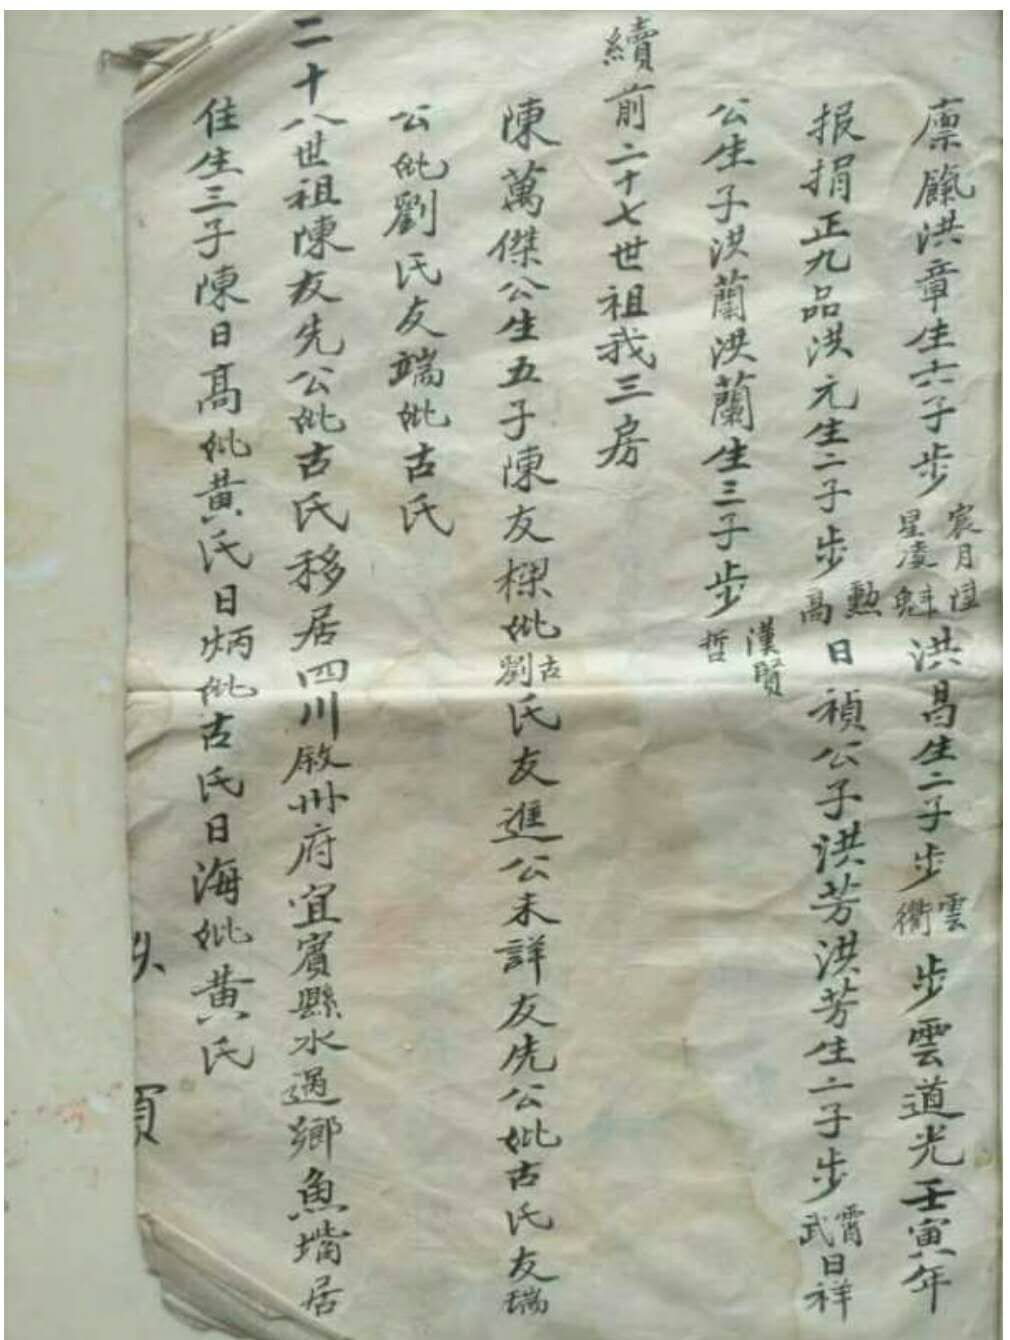 廪餼洪章生六子步宸月恒星凌魁洪昌生二子步雲衢步雲道光壬寅年
报捐正九品洪元生二子步勲高日禎公子洪芳洪芳生二子步霄武日祥
公生子洪蘭洪蘭生三子步漢賢哲
續前二十七世祖我三房
陳萬傑公生五子陳友樑妣古劉氏友進公未詳友先公妣古氏友瑞
公妣劉氏友端妣古氏
二十八世祖陳友先公妣古氏移居四川敘州府宜賓縣水過鄉魚嘴居
住生三子陳日高妣黄氏日炳妣古氏日海妣黄氏